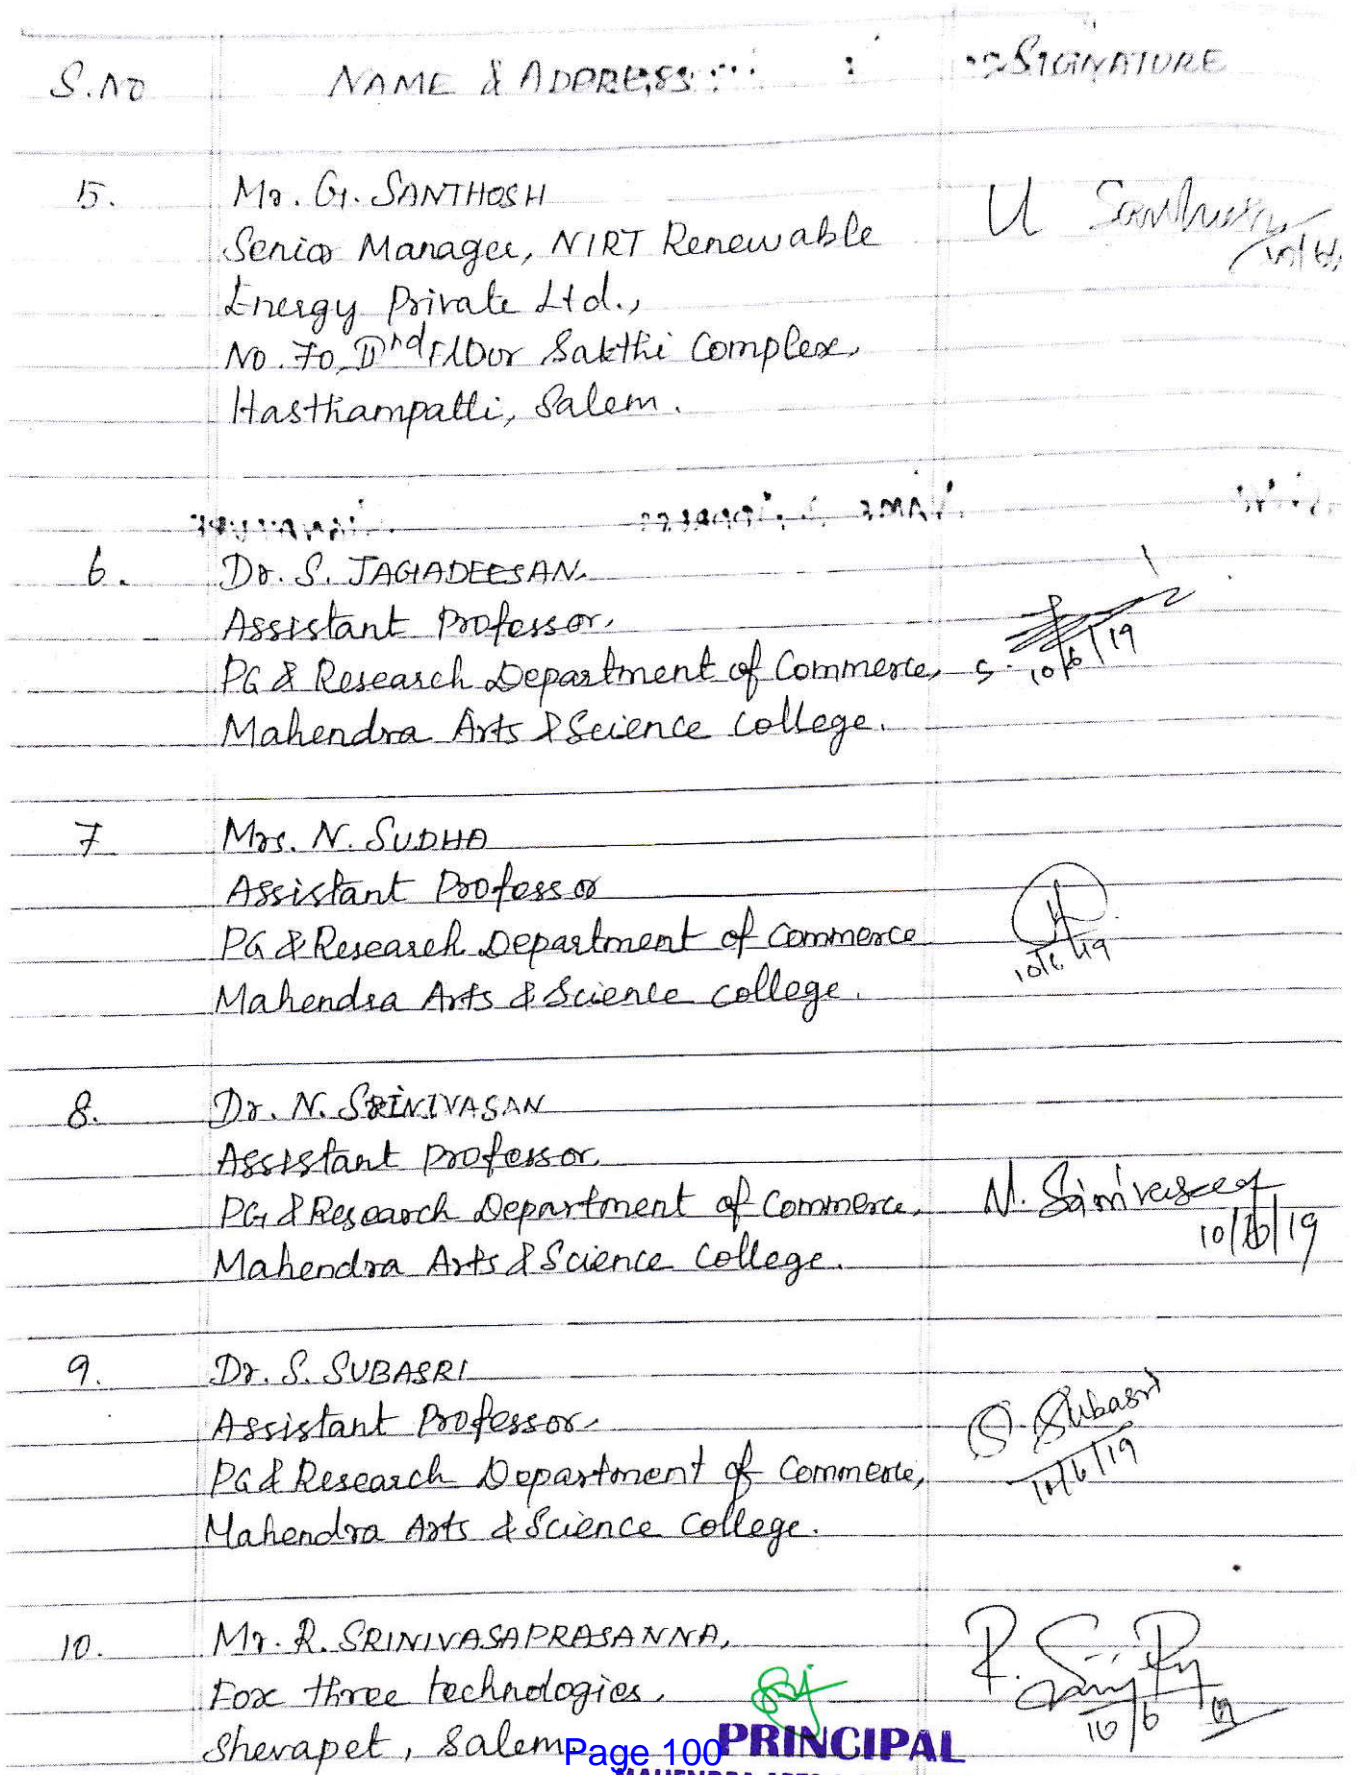 S.NO NAME & ADDRESS SIGNATURE
5. Mr. G. SANTHOSH
Senior Manager, NIRT Renewable
Energy Private Ltd.,
No. 70, IInd Floor Sakthi Complex,
Hasthampatti, Salem.
6. Dr. S. JAGADEESAN.
Assistant Professor,
PG & Research Department of Commerce, S. 10/6/19
Mahendra Arts & Science College.
7 Mrs. N. SUDHA
Assistant Professor
PG & Research Department of Commerce
Mahendra Arts & Science College. 10/6/19
8. Dr. N. SRINIVASAN
Assistant Professor,
PG & Research Department of Commerce, N. Srinivasan
Mahendra Arts & Science College. 10/6/19
9. Dr. S. SUBASRI
Assistant Professor, S. Subasri
PG & Research Department of Commerce, 10/6/19
Mahendra Arts & Science College.
10. Mr. R. SRINIVASAPRASANNA,
Fox three technologies, R.
Shevapet, Salem. 10/6/19
Page 100 PRINCIPAL